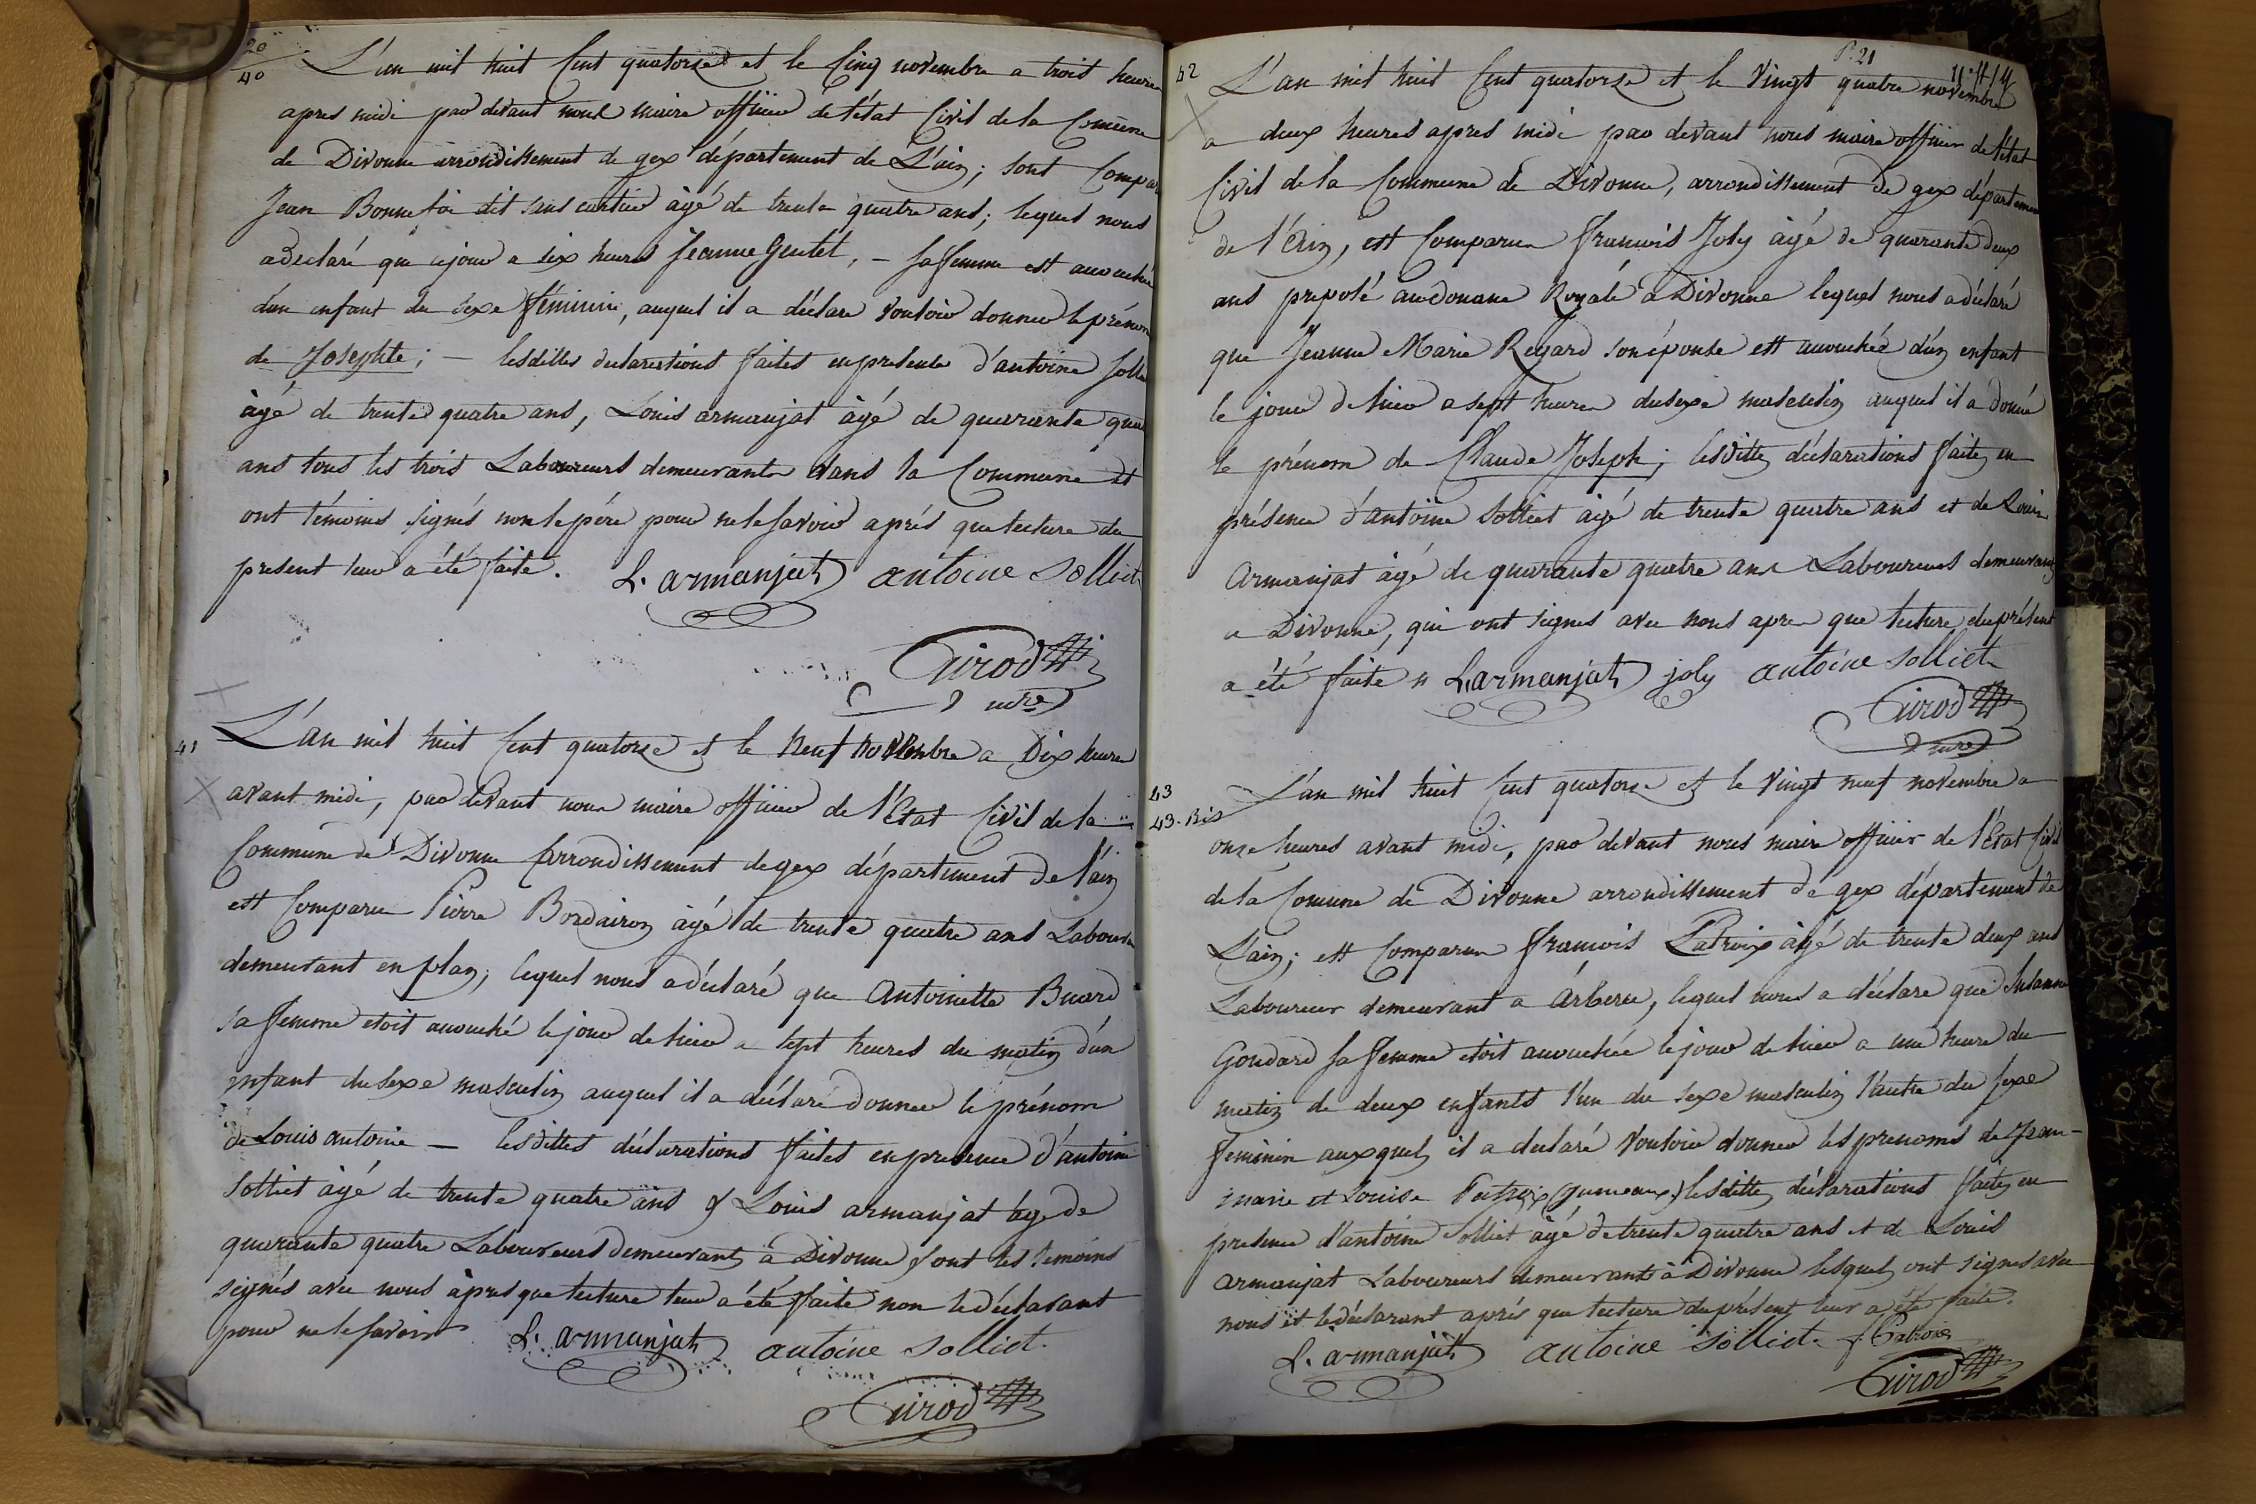 20
40
L'an mil huit Cent quatorze et le Cinq novembre a trois heures
apres midi par devant nous maire officier de l'état Civil de la Comune
de Divonne arrondissement de gex département de L'ain; sont Compar
Jean Bonnefoi dit sans curtier âgé de trente quatre ans; lequel nous
a déclaré que ce jour a six heures Jeanne Gentet, — sa femme est accouchée
d'un enfant du sexe féminin, auquel il a déclaré vouloir donner le prénom
de Josephte; — lesdittes declarations faites en presence d'antoine Solli
âgé de trente quatre ans, Louis armanjat âgé de quarante qua
ans tous les trois Laboureurs demeurants dans la Commune et
ont témoins signés non le père pour ne le savoir aprés que lecture du
present leur a été faite. L. armanjat antoine Solliet
Girod
maire
41
L'an mil huit Cent quatorze et le Neuf Novembre a Dix heures
avant midi, par devant nous maire officier de l'Etat Civil de la
Commune de Divonne arrondissement de gex département de l'ain
est Comparu Pierre Bordairon âgé de trente quatre ans Laboureur
demeurant en plan, lequel nous a déclaré que Antoinette Buard
sa femme etoit accouché le jour de hier a sept heures du matin d'un
enfant du sexe masculin auquel il a déclaré donner le prénom
de Louis antoine — lesdittes déclarations faites en presence d'antoine
Solliet âgé de trente quatre ans & Louis armanjat âgé de
quarante quatre Laboureurs demeurants à Divonne sont les temoins
signés avec nous àpres que lecture leur a été faite non le déclarant
pour ne le savoir L. armanjat antoine Solliet.
Girod
P. 21
42
L'an mil huit Cent quatorze et le Vingt quatre novembre
a deux heures apres midi par devant nous maire officier de l'état
Civil de la Commune de Divonne, arrondissement de gex départemen
de l'Ain, est Comparu francois Joly âgé de quarante deux
ans preposé au douane Royale a Divonne lequel nous a déclaré
que Jeanne Marie Regard son épouse est accouchée d'un enfant
le jour de hier a sept heures du sexe masculin auquel il a donné
le prénom de Claude Joseph; lesdittes déclarations faites en
présence d'antoine Solliet âgé de trente quatre ans et de Louis
Armanjat âgé de quarante quatre ans Laboureurs demeurants
a Divonne, qui ont signes avec nous apres que lecture du présent
a été faite L. armanjat joly antoine Solliet
Girod
maire
43
43. Bis
L'an mil huit Cent quatorze et le vingt neuf novembre a
onze heures avant midi, par devant nous maire officier de l'Etat Civil
de la Comune de Divonne arrondissement de gex département de
L'ain; est Comparu francois Patroix âgé de trente deux ans
Laboureur demeurant a Arbere, lequel nous a déclare que Susanne
Goudard sa femme etoit accouchée le jour de hier a une heure du
matin de deux enfants l'un du sexe masculin l'autre du sexe
feminin auxquels il a declaré vouloir donner les prenoms de Jean-
marie et Louise Patroix (Jumeaux) lesdittes déclarations faites en
presence d'antoine Solliet âgé de trente quatre ans et de Louis
armanjat Laboureurs demeurants à Divonne lesquels ont signes avec
nous et le déclarant aprés que lecture du présent leur a été faite.
L. armanjat antoine Solliet f. Patroix
Girod